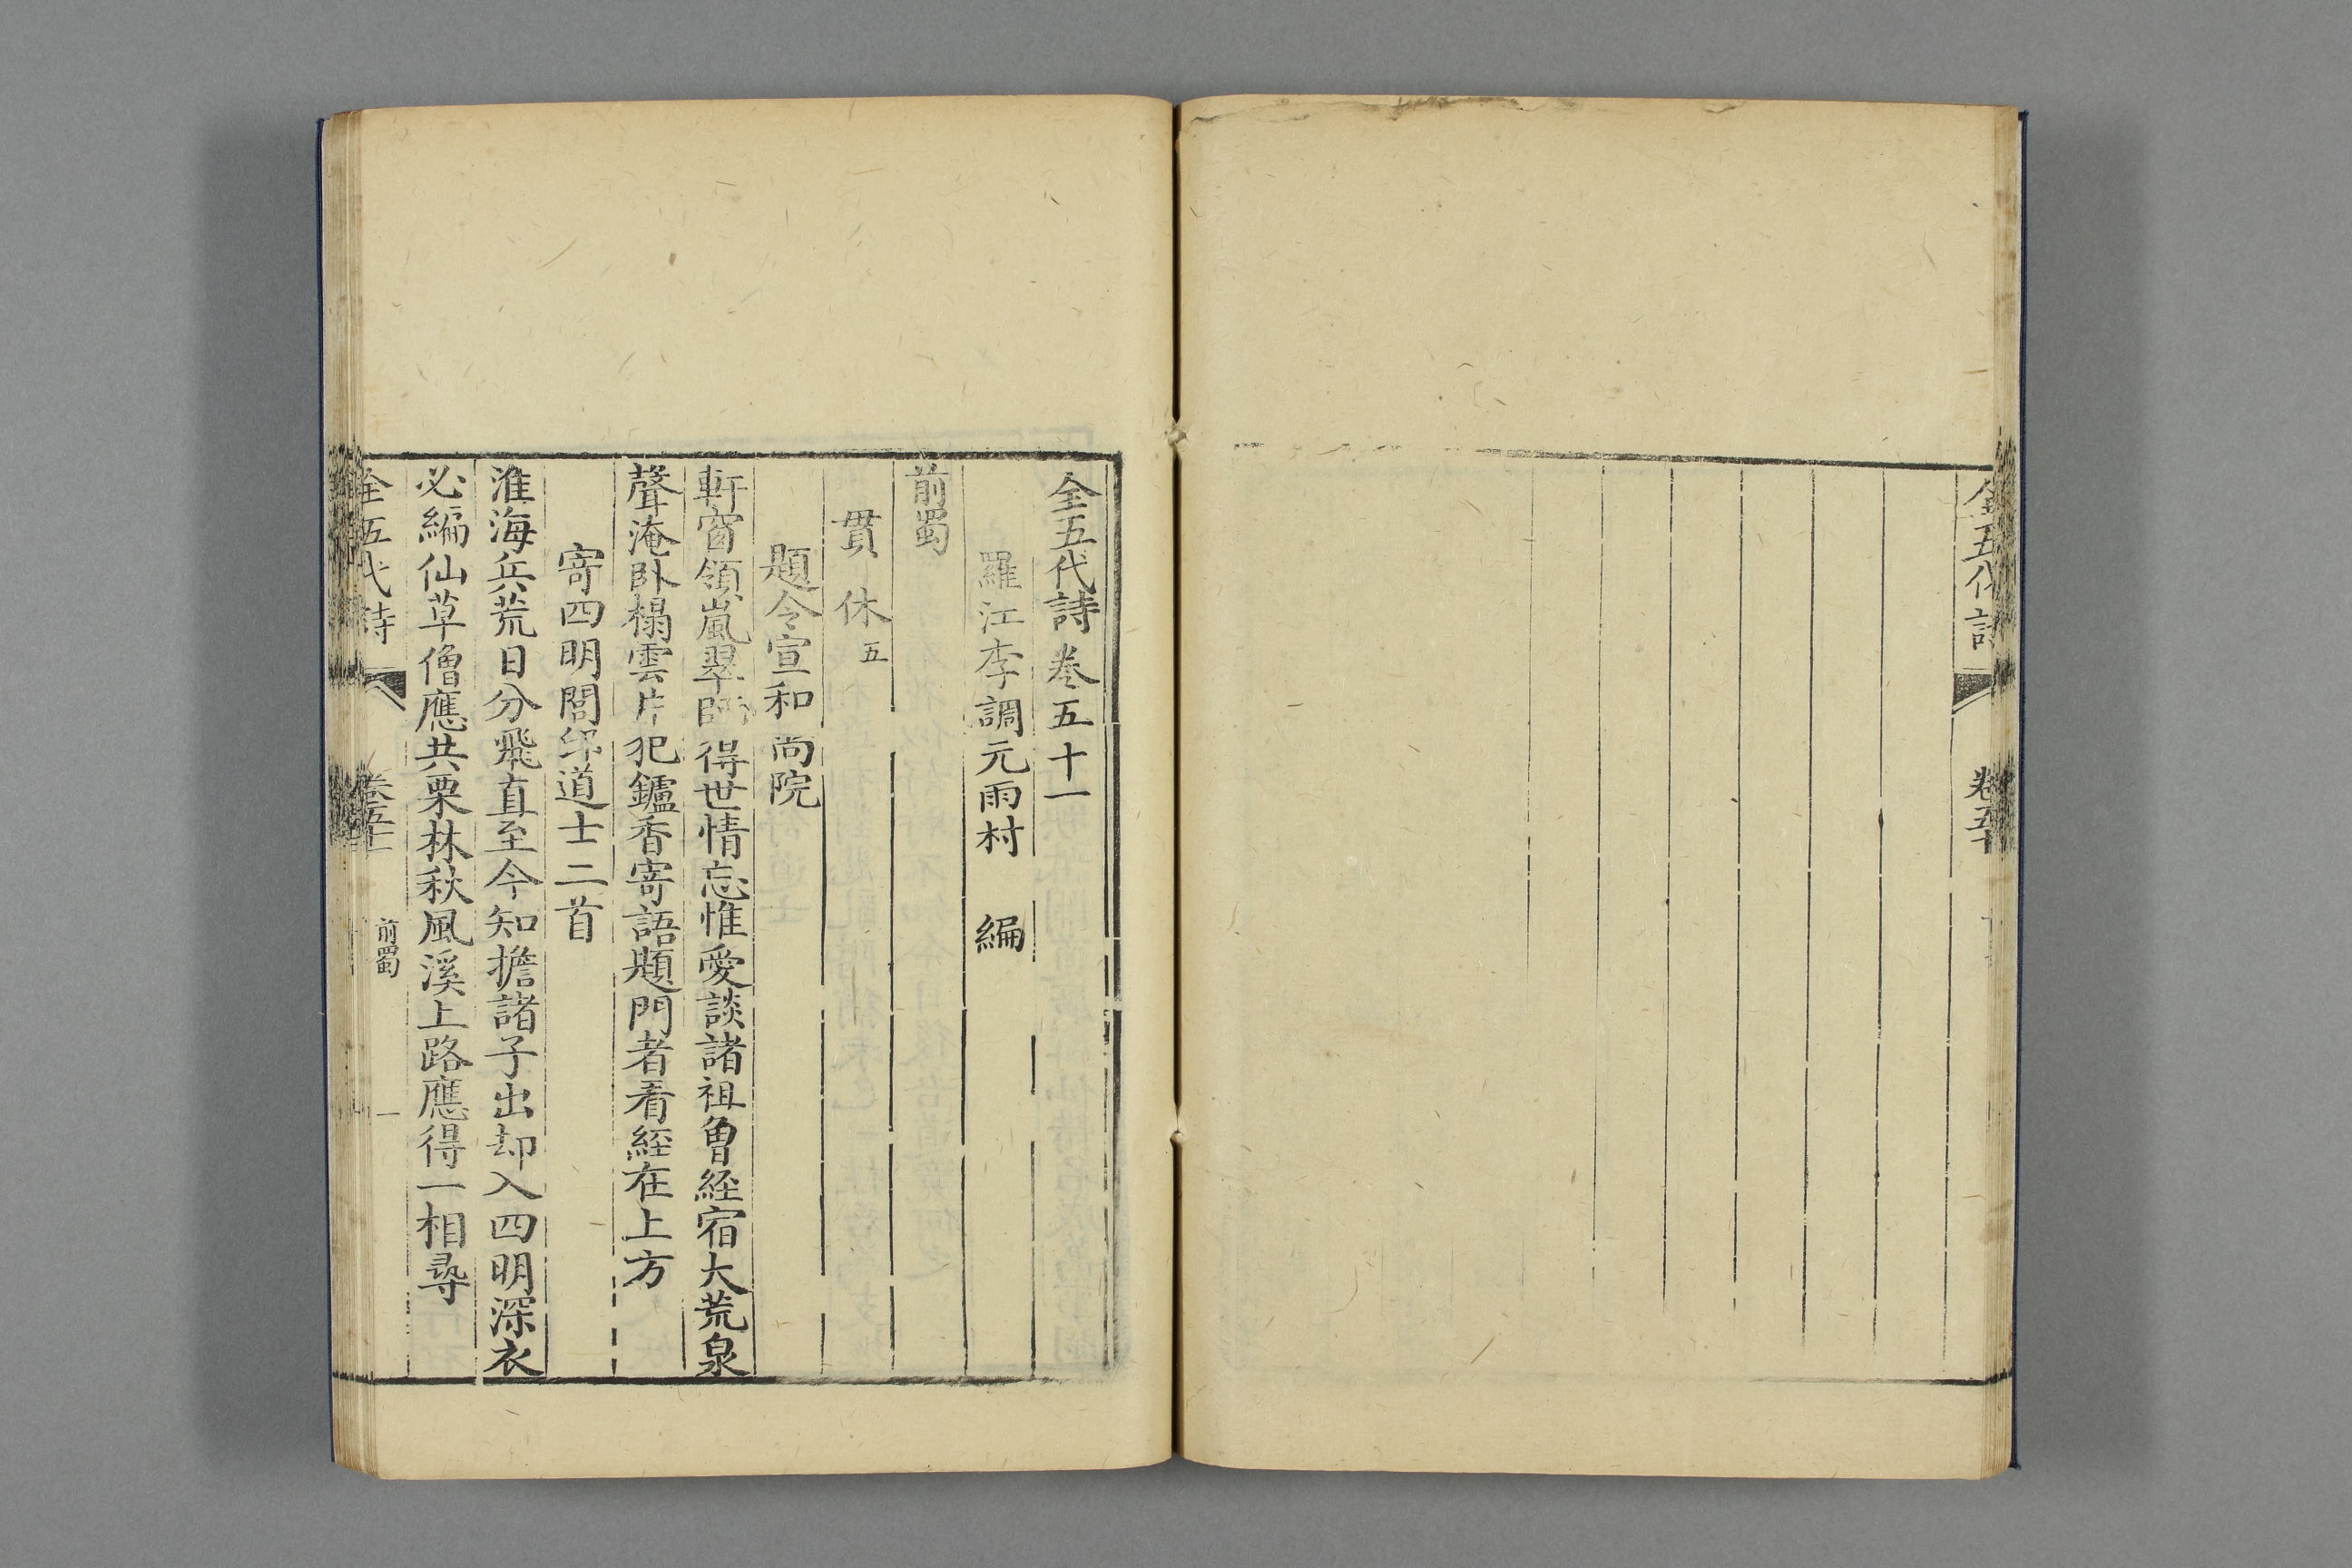 全五代詩
卷五十
全五代詩卷五十一
羅江李調元雨村 編
前蜀
貫休五
題令宣和尚院
軒窗領嵐翠師得世情忘惟愛談諸祖曾經宿大荒泉
聲淹臥榻雲片犯鑪香寄語題門者看經在上方
寄四明閭邱道士二首
淮海兵荒日分飛直至今知擔諸子出却入四明深衣
必編仙草僧應共栗林秋風溪上路應得一相尋
全五代詩
卷五十一
前蜀
一